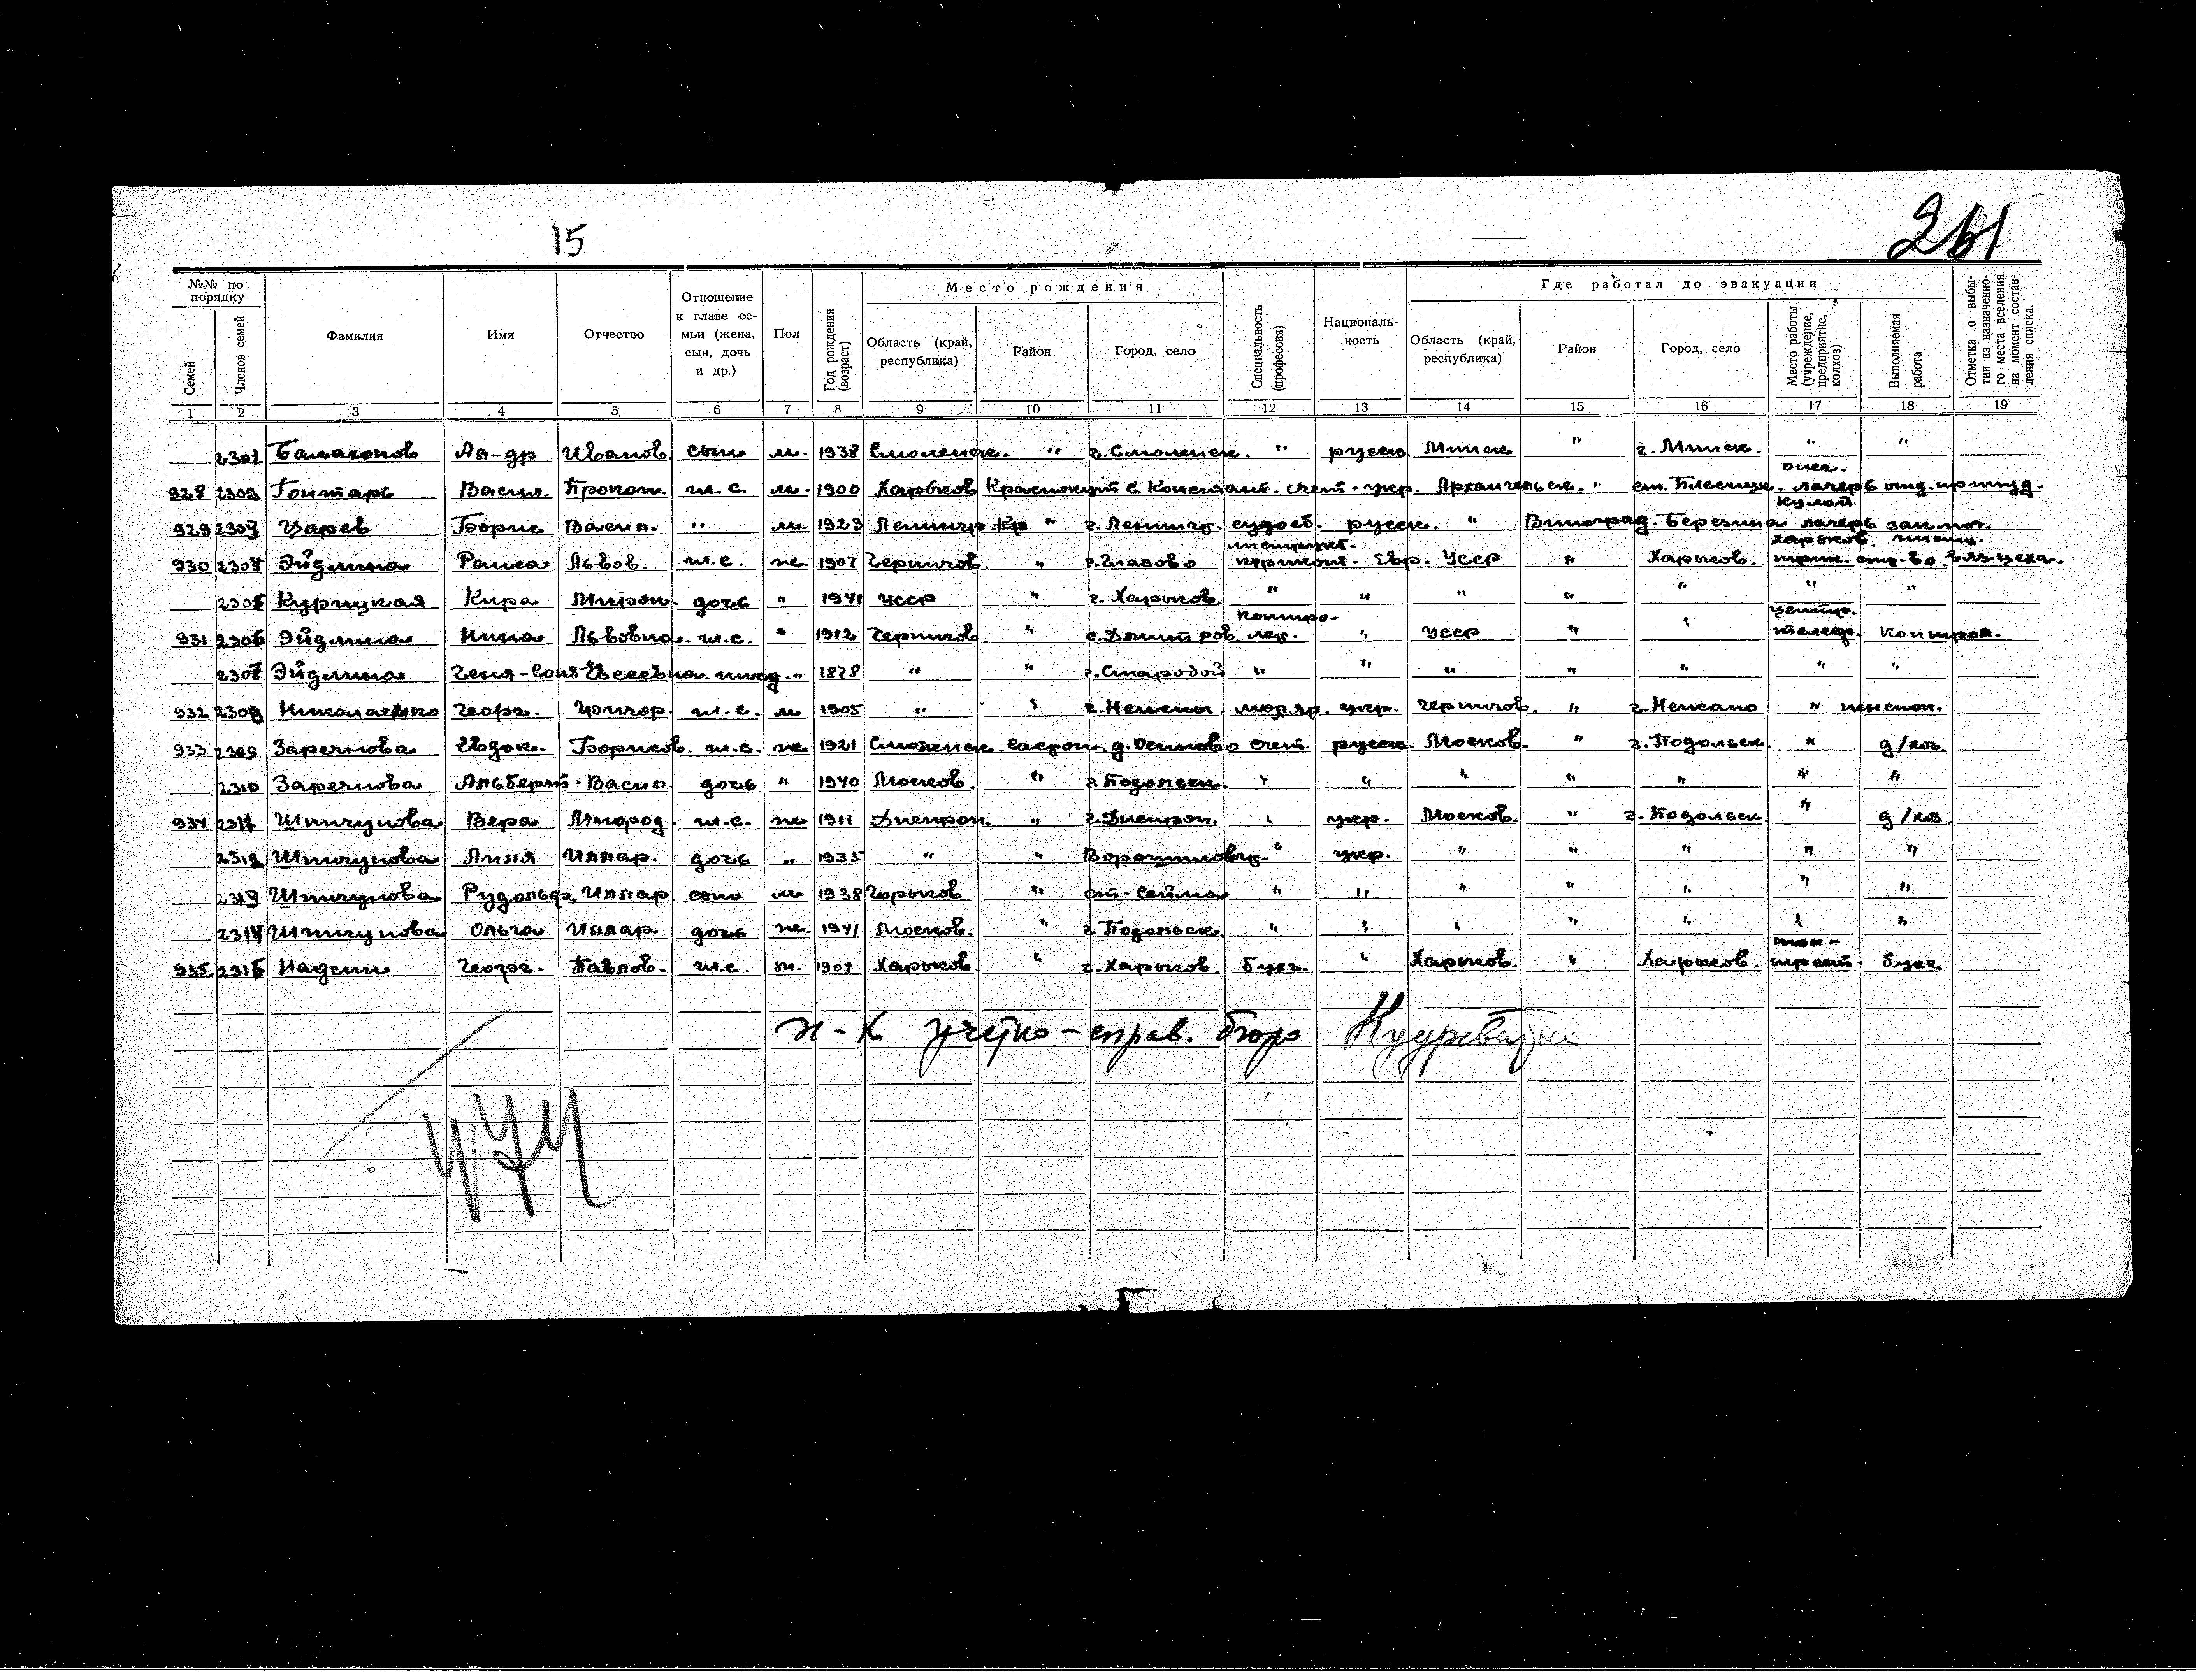 15
261
№№ по порядку
Семей
Членов семей
Фамилия
Имя
Отчество
Отношение к главе семьи (жена, сын, дочь и др.)
Пол
Год рождения (возраст)
Место рождения
Область (край, республика)
Район
Город, село
Специальность (профессия)
Националь-ность
Где работал до эвакуации
Область (край, республика)
Район
Город, село
Место работы (учреждение, предприятие, колхоз)
Выполняемая работа
Отметка о выбы-тии из назначенно-го места вселения на момент состав-ления списка.
1 2 3 4 5 6 7 8 9 10 11 12 13 14 15 16 17 18 19
2301 Балаконов Ал-др Иванов. сын м. 1938 Смоленск. " г. Смоленск. " русск. Минск " г. Минск. " "
928 2302 Гонтарь Васил. Прокоп. гл. с. м. 1900 Харьков Краснокут с. Констант. счет. укр. Архангельск. " ст. Плесецк. лагерь
929 2303 Царев Борис Васил. " м. 1923 Ленингр. " г. Ленингр. русск. " Виноград. Березина лагерь заключ.
930 2304 Эйдлина Раиса Львов. гл. с. ж. 1907 Чернигов. " г. Глазово Евр. УССР " Харьков.
2305 Курицкая Кира Мирон. дочь " 1941 УССР " г. Харьков. " " " " " " "
931 2306 Эйдлина Нина Львовна. гл. с. " 1912 Чернигов. " с. Дмитров контро-лер. " УССР " " центр. телегр. контрол.
2307 Эйдлина Геня-Соня Евсеевна ижд. " 1878 " " г. Стародой " " " " " " "
932 2308 Николаенко Георг. Григор. гл. с. м 1905 " " г. Нежин. укр. Чернигов. " г. Нежино "
933 2309 Заречнова Евдок. Борисов. гл. с. ж. 1921 Смоленск. д. Осиново счет. русск. Москов. " г. Подольск. " д/хоз.
2310 Заречнова Альберт. Васил. дочь " 1940 Москов. " г. Подольск. " " " " " " "
934 2311 Шпигунова Вера гл. с. ж 1911 Днепроп. " г. Днепроп. " укр. Москов. " г. Подольск. " д/хоз.
2312 Шпигунова Лиля Иллар. дочь " 1935 " " Ворошиловск. " укр. " " " " "
2313 Шпигунова Рудольф. Иллар сын м 1938 " ст. Сейма " " " " " " "
2314 Шпигунова Ольга Иллар. дочь ж. 1941 Москов. " г. Подольск. " " " " " " "
935 2315 Надеин Георг. Павлов. гл. с. м. 1901 Харьков. " г. Харьков. бухг. " Харьков. " Харьков. бухг.
Н-К учетно-справ. бюро
474